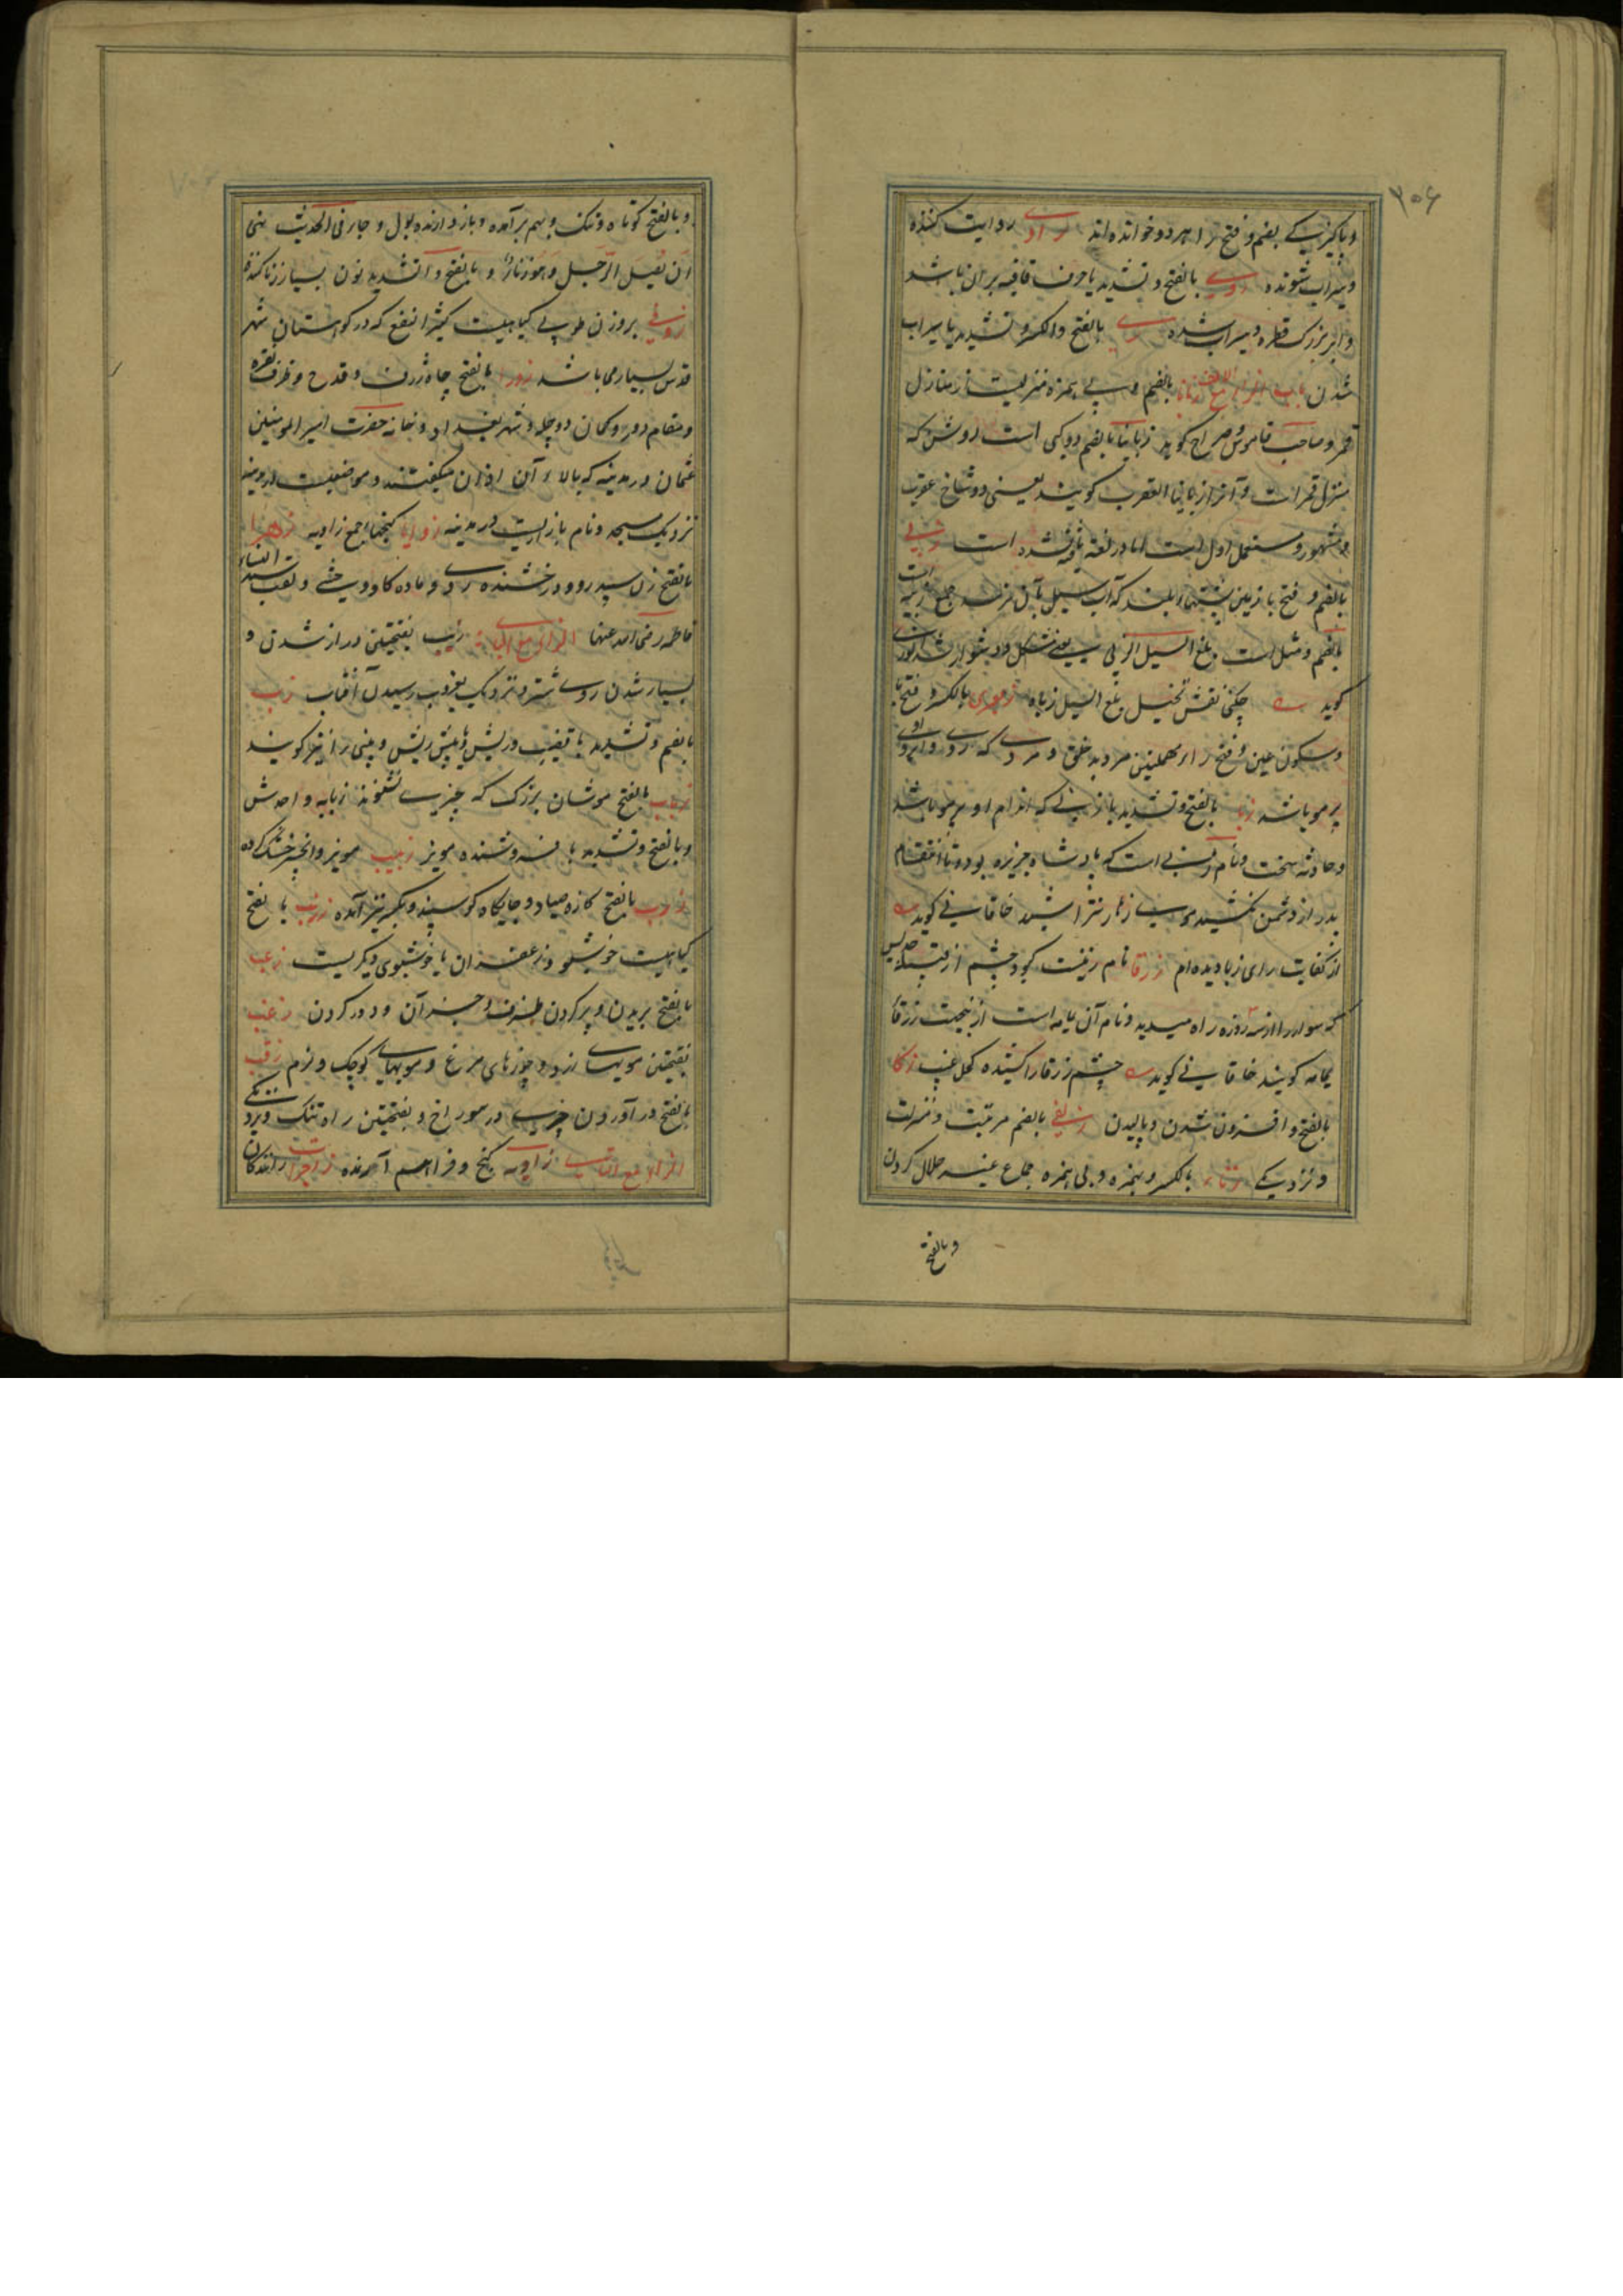 ۳۰۶
و پاکیزگی بضم و فتح را هر دو خوانده اند راوی روایت کننده
و سیراب شونده روی بالفتح و تشدید یا حرف قافیه بران باشد
و ابر بزرگ قطره و سیراب شده ری بالفتح والکسر و تشدید یا سیراب
شدن باب الزای مع الالف زبانا بالضم و بی همزه منزلیست از منازل
قمر و صاحب قاموس و صراح گوید زبانیا بالضم دو کوکبی است روشن که
منزل قمر است و آنرا زبانیا العقرب گویند یعنی دو شاخ عقرب
و مشهور و مستعمل اول است اما در لغة یافته نشده است زبی
بالضم و فتح با زمین پشتهاء بلند که آب سیل بآن نرسد جمع زبیه است
بالضم و مثل است بلغ السیل الزبی یعنی مشکل و دشوار شد
گوید چکنی نقش تخیل بلغ السیل زباه زبعری بالکسر و فتح با
و سکون عین و فتح راء مهملتین مرد بد خلق و مردی که روی و ابروی او
پر مو باشد زبا بالفتح و تشدید با زنی که اندام او پر مو باشد
و حادثه سخت و نام زنی است که پادشاه جزیره بود و تا انتقام
پدر از دشمن نکشید موی زهار نتراشید خاقانی گوید
از کفایت رای زبا دیده ام زرقا نام زنیست کبود چشم از قبیله جدیس
که سوار را از سه روزه راه میدید و نام آن یمامه است ازینجهت زرقا
یمامه گویند خاقانی گوید چشم زرقا را کشیده کحل غیب زکا
بالفتح و افزون شدن و بالیدن زلفی بالضم مرتبت و منزلت
و نزدیکی زناء بالکسر و بهمزه و بی همزه جماع غیر حلال کردن
و بالفتح
و بالفتح کوتاه و تنک و بهم برآمده و باز دارنده بول و جاء فی الحدیث نهی
ان یصلی الرجل و هو زناء و بالفتح و تشدید نون بسیار زنا کننده
زوفی بروزن طوبی گیاهیست کثیر النفع که در کوهستان شهر
قدس بسیار می باشد زورا بالفتح چاه ژرف و قدح و ظرف نقره
و مقام دور و کمان و دجله و شهر بغداد و خانه حضرت امیر المومنین
عثمان در مدینه که بالاء آن اذان میگفتند و موضعیست در مدینه
نزدیک مسجد و نام بازاریست در مدینه زوایا کنجها جمع زاویه زهرا
بالفتح زن سپید رو و درخشنده روی و ماده گاو وحشی و لقب سیدة النساء
فاطمه رضی الله عنها الزای مع الباء زبب بفتحتین دراز شدن و
بسیار شدن موی شتر و نزدیک بغروب رسیدن آفتاب زب
بالضم و تشدید با قضیب و ریش یا پیش ریش و بینی را نیز گویند
زباب بالفتح موشان بزرگ که چیزی نشنوند زبابه واحدش
و بالفتح و تشدید با فروشنده مویز زبیب مویز و انجیر خشک کرده
زرب بالفتح کازه صیاد و جایگاه گوسپند و بکسر نیز آمده زرنب بالفتح
گیاهیست خوشبو و زعفران یا خوشبوی دیگریست زعب
بالفتح بریدن و پر کردن ظرف و جز آن و دور کردن زغب
بفتحتین مویهای زرد و پرزهای مرغ و مویهای کوچک و نرم زقب
بالفتح در آوردن چیزی در سوراخ و بفتحتین راه تنک
الزای مع التا زاویه کنج و فراهم آورنده زاجرات رانندگان